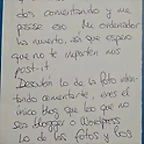 dos comentando y me
pasase eso. Mi ordenador
ha muerto, así que espero
que no te importen mis
post-it
Descubrí lo de la foto
comentarte, eres el
único blog que leo que no
sea blogger o Wordpress
Lo de las fotos y los